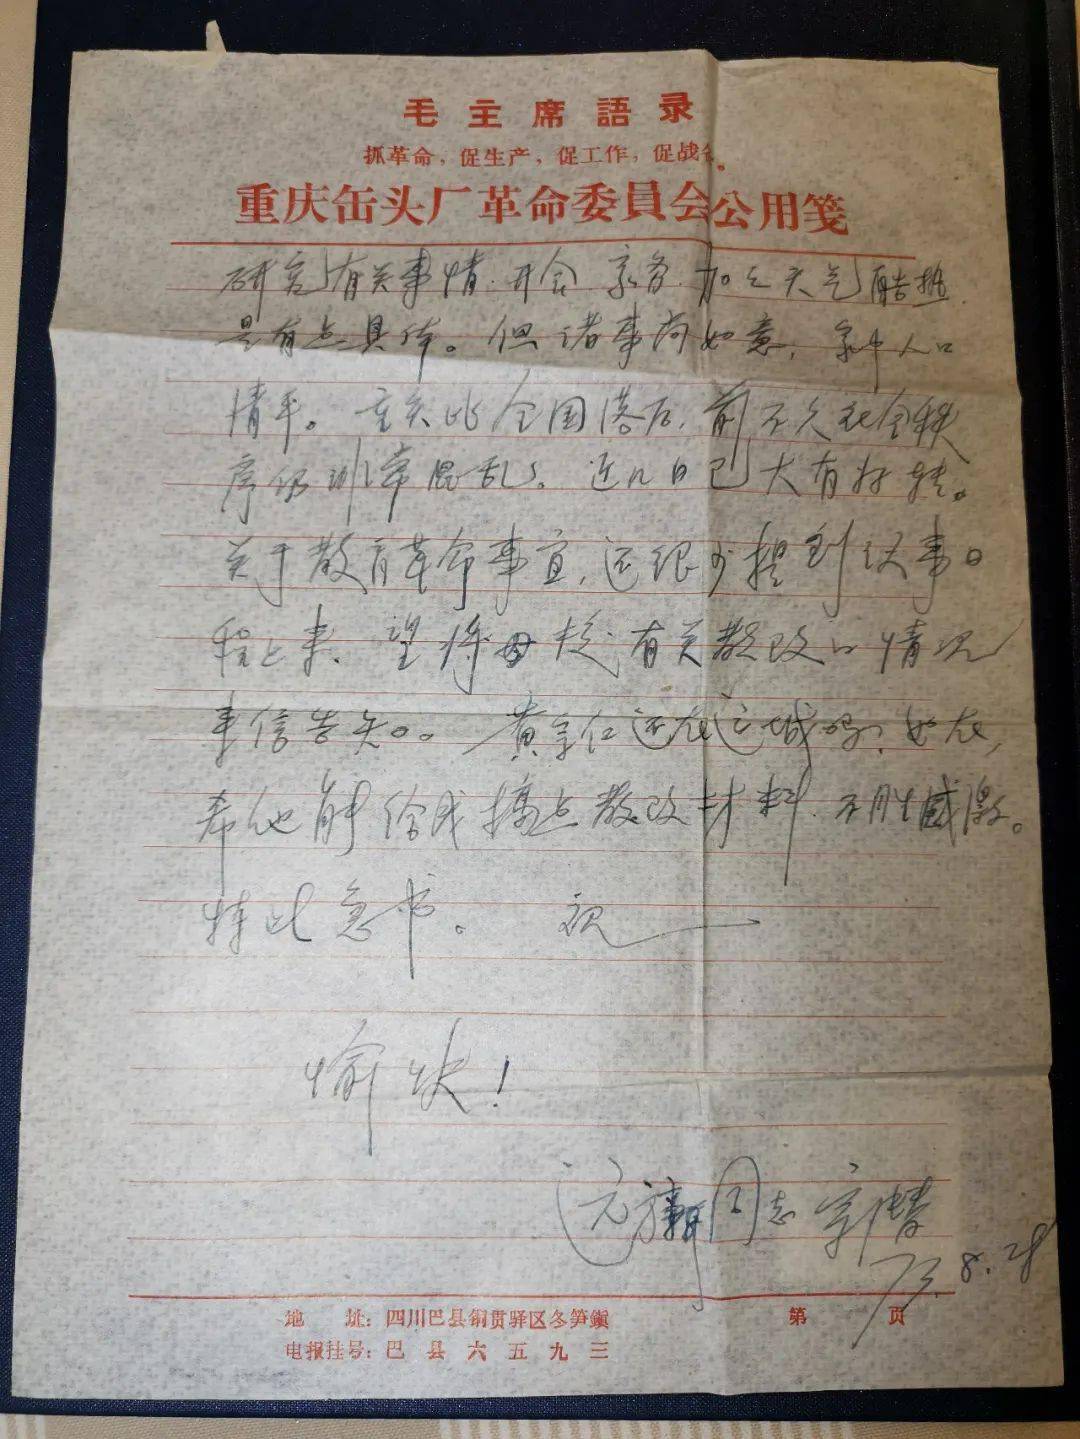 毛主席語录
抓革命，促生产，促工作，促战备。
重庆缶头厂革命委員会公用笺
研究有关事情.开会 家务.加之天气酷热.
是有点具体。但诸事尚如意，家中人口
清平。重庆比全国落后，前不久社会秩
序仍非常混乱。近几日已大有好转。
关于教育革命事宜，还很少提到议事日
程上来、望将母校有关教改的情况
来信告知。黄宗仁还在运城吗，如在，
希他能给我搞点教改材料.不胜感激。
特此急书。 祝
愉快！
同志
73.8.28
地 址：四川巴县铜贯驿区冬笋鎭
电报挂号：巴县六五九三
第 页